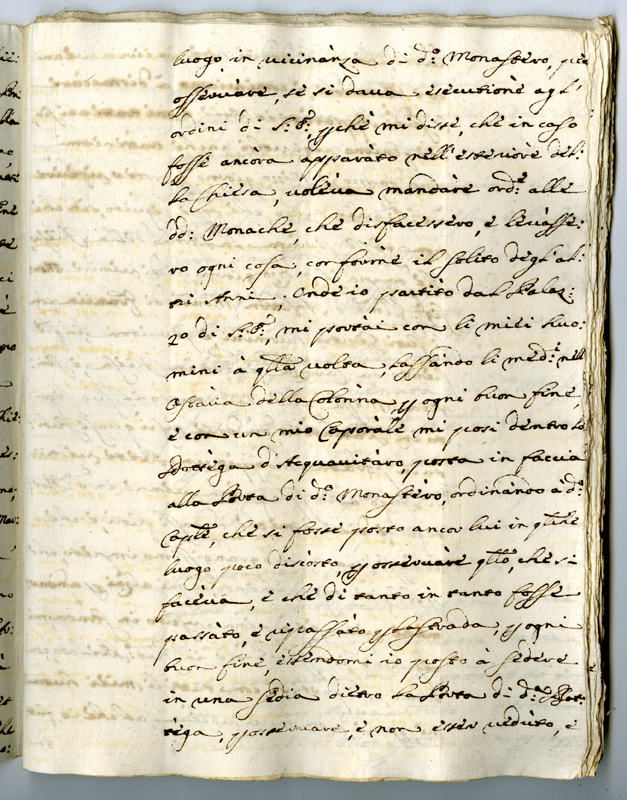 luogo in vicinanza di d.º Monastero, per
osservare, se si dava esecutione agl'
ordini di S. E., p chè mi disse, che in caso
fosse ancora apparato nell'esteriore del:
la Chiesa, voleva mandare ord.e alle
dd: Monache, che disfacessero, e levasse:
ro ogni cosa, conforme il solito degl'al:
tri Anni; Onde io partito dal Palaz:
zo di S. E., mi portai con li miei huo:
mini à q̃lla volta, lassando li med.i nell'
della Colonna, p ogni buon fine,
e con un mio Caporale mi posi dentro la
Bottega d'Acquavitaro, posta in faccia
alla Porta di d.º Monastero, ordinando à d.º
Cap̃le, che si fosse posto ancor lui in q̃lche
luogo poco discosto, p osservare q̃llo, che si
faceva, e che di tanto in tanto fosse
passato, e ripassato p la strada, p ogni
buon fine, essendomi io posto à sedere
in una sedia dietro la Porta di d.a Bot:
tega, p osservare, e non esser veduto, e